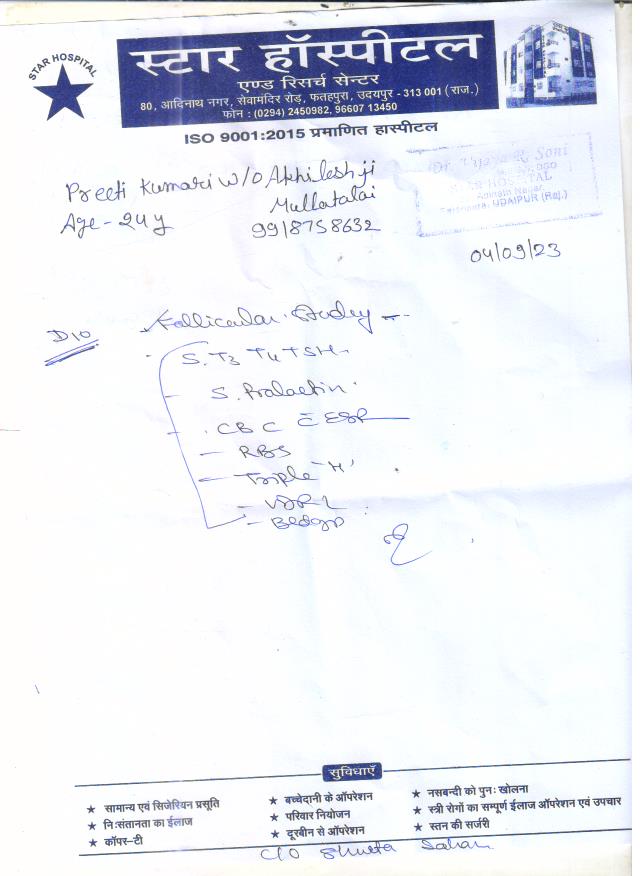 STAR HOSPITAL
स्टार हॉस्पीटल
एण्ड रिसर्च सेन्टर
80, आदिनाथ नगर, सेवामंदिर रोड़, फतहपुरा, उदयपुर - 313 001 (राज.)
फोन : (0294) 2450982, 96607 13450
ISO 9001:2015 प्रमाणित हास्पीटल
Dr. Vijaya R. Soni
STAR HOSPITAL
Adinath Nagar,
Fatehpura, UDAIPUR (Raj.)
Preeti Kumari W/O Akhilesh ji
Mullatalai
Age - 24 y
9918758632
04/09/23
D10 Follicular Study
S. T3 T4 TSH
- S. Prolactin
- CBC c̄ ESR
- RBS
- Triple 'H'
- VDRL
- Bldgp
सुविधाएँ
★ सामान्य एवं सिजेरियन प्रसूति
★ निःसंतानता का ईलाज
★ कॉपर-टी
★ बच्चेदानी के ऑपरेशन
★ परिवार नियोजन
★ दूरबीन से ऑपरेशन
★ नसबन्दी को पुनः खोलना
★ स्त्री रोगों का सम्पूर्ण ईलाज ऑपरेशन एवं उपचार
★ स्तन की सर्जरी
C/O Shweta